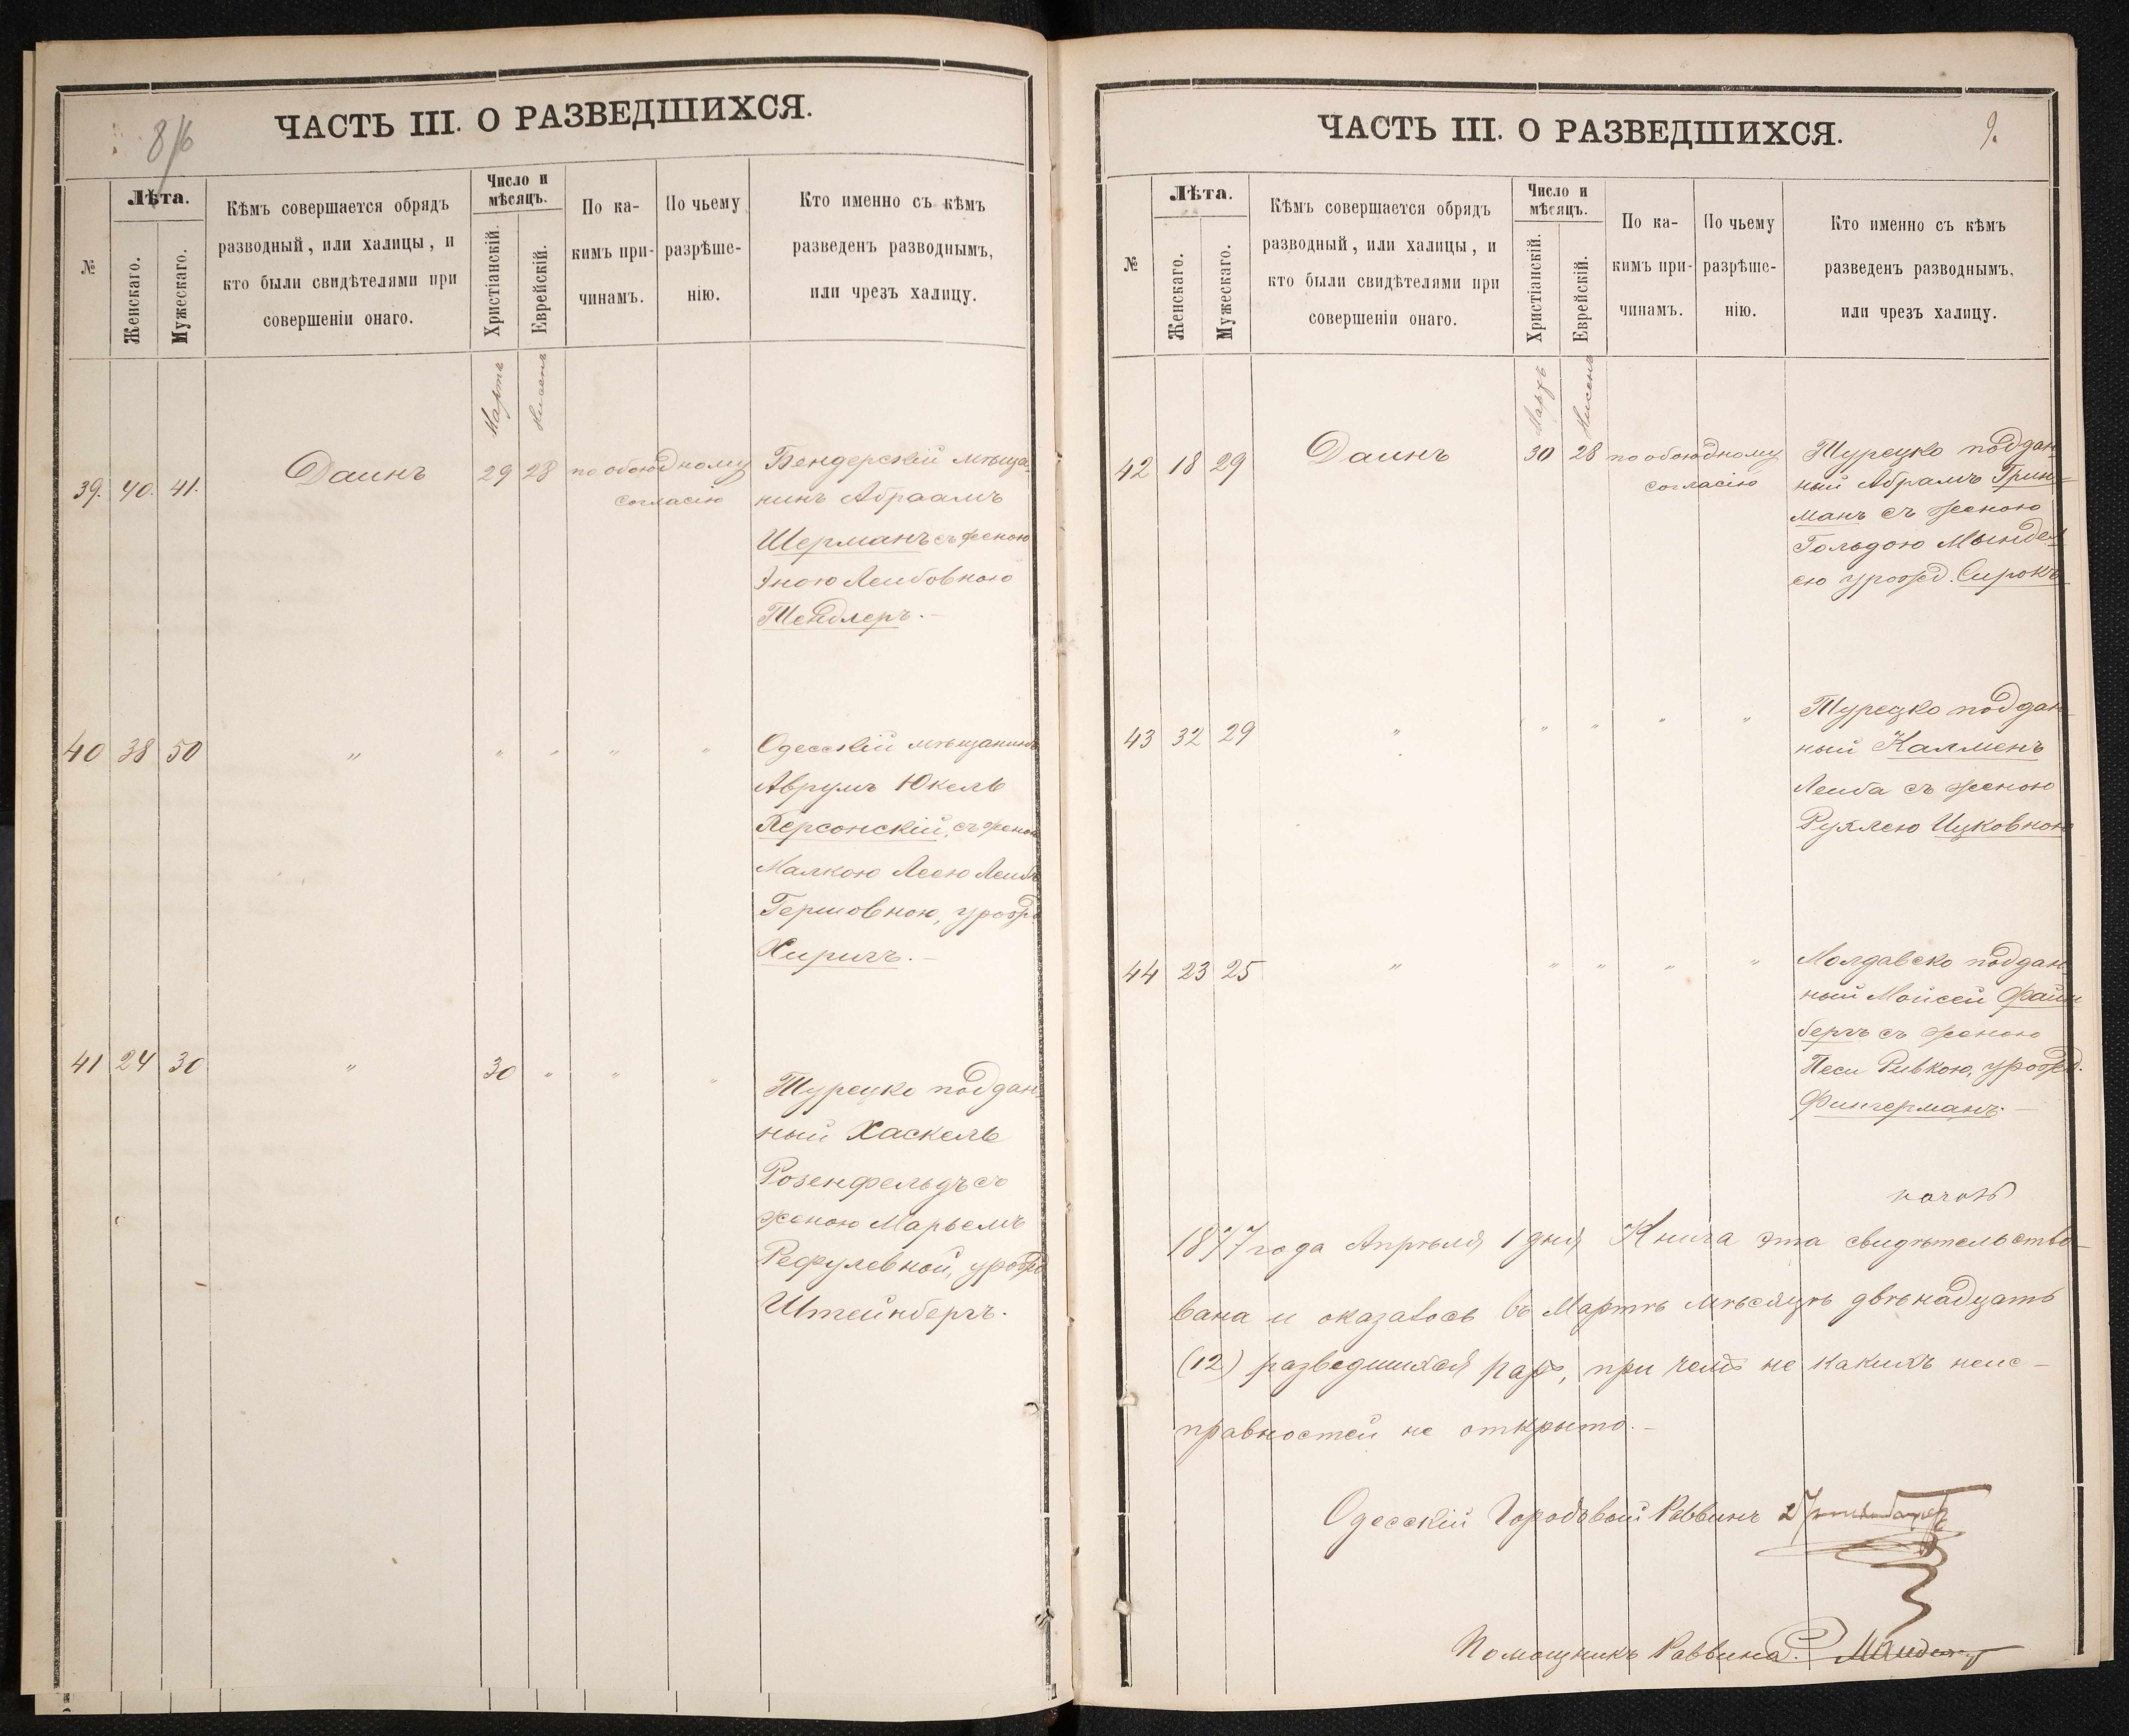 8/б
ЧАСТЬ III. О РАЗВЕДШИХСЯ.
№
Лѣта.
Женскаго.
Мужескаго.
Кѣмъ совершается обрядъ
разводный, или халицы, и
кто были свидѣтелями при
совершеніи онаго.
Число и
мѣсяцъ.
Христіанскій.
Еврейскій.
По ка-
кимъ при-
чинамъ.
По чьему
разрѣше-
нію.
Кто именно съ кѣмъ
разведенъ разводнымъ,
или чрезъ халицу.
Мартъ Нисенъ
39. 40. 41. Даинъ 29 28 по обоюдному
согласію
Бендерскій мѣща-
нинъ Абраамъ
Шерманъ съ женою
Эною Лейбовною
Тендлеръ.-
40 38 50 " " " " "
Одесскій мѣщанинъ
Аврумъ Юкель
Херсонскій, съ женою
Малкою Леею Лейбъ
Гершовною, урожд.
Хиричъ.-
41 24 30 " 30 " " "
Турецко поддан-
ный Хаскель
Розенфельдъ съ
женою Марьемъ
Рефулевной, урожд
Штейнбергъ.
ЧАСТЬ III. О РАЗВЕДШИХСЯ.
9.
№
Лѣта.
Женскаго.
Мужескаго.
Кѣмъ совершается обрядъ
разводный, или халицы, и
кто были свидѣтелями при
совершеніи онаго.
Число и
мѣсяцъ.
Христіанскій.
Еврейскій.
По ка-
кимъ при-
чинамъ.
По чьему
разрѣше-
нію.
Кто именно съ кѣмъ
разведенъ разводнымъ,
или чрезъ халицу.
Мартъ Нисенъ
42 18 29 Даинъ 30 28 по обоюдному
согласію
Турецко поддан-
ный Абрамъ Грин-
манъ съ женою
Гольдою Мындел-
ею урожд. Сирокъ
43 32 29 " " " " "
Турецко поддан-
ный Калменъ
Лейба съ женою
Рухлею Ицковною
44 23 25 " " " " "
Молдавско поддан-
ный Мойсей Файн
бергъ съ женою
Песи Ривкою, урожд.
Фингерманъ.-
1877 года Апрѣля 1 дня Книга эта свидѣтельство-
вана и оказалось въ Мартѣ мѣсяцѣ двѣнадцать
(12) разведшихся паръ, при чемъ не какихъ неис-
правностей не открыто.-
Одесскій Городовой Раввинъ
Помощникъ Раввина